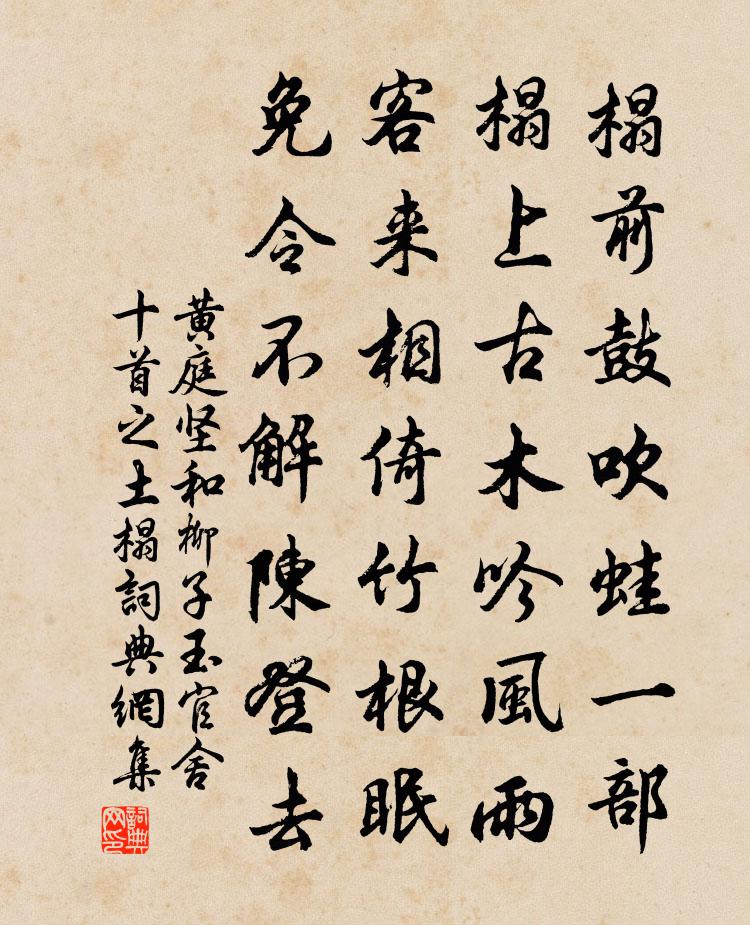 榻前鼓吹蛙一部
榻上古木吟風雨
客来相倚竹根眠
免令不解陳登去
黄庭坚和柳子玉官舍
十首之土榻詞典網集
詞典网印